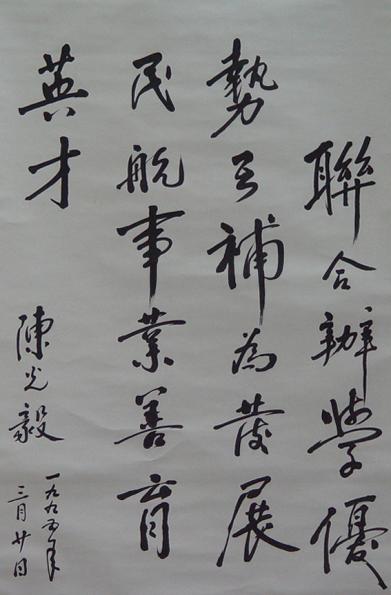 聯合辦學優
勢互補為發展
民航事業善育
英才
陳光毅
一九九五年
三月廿日